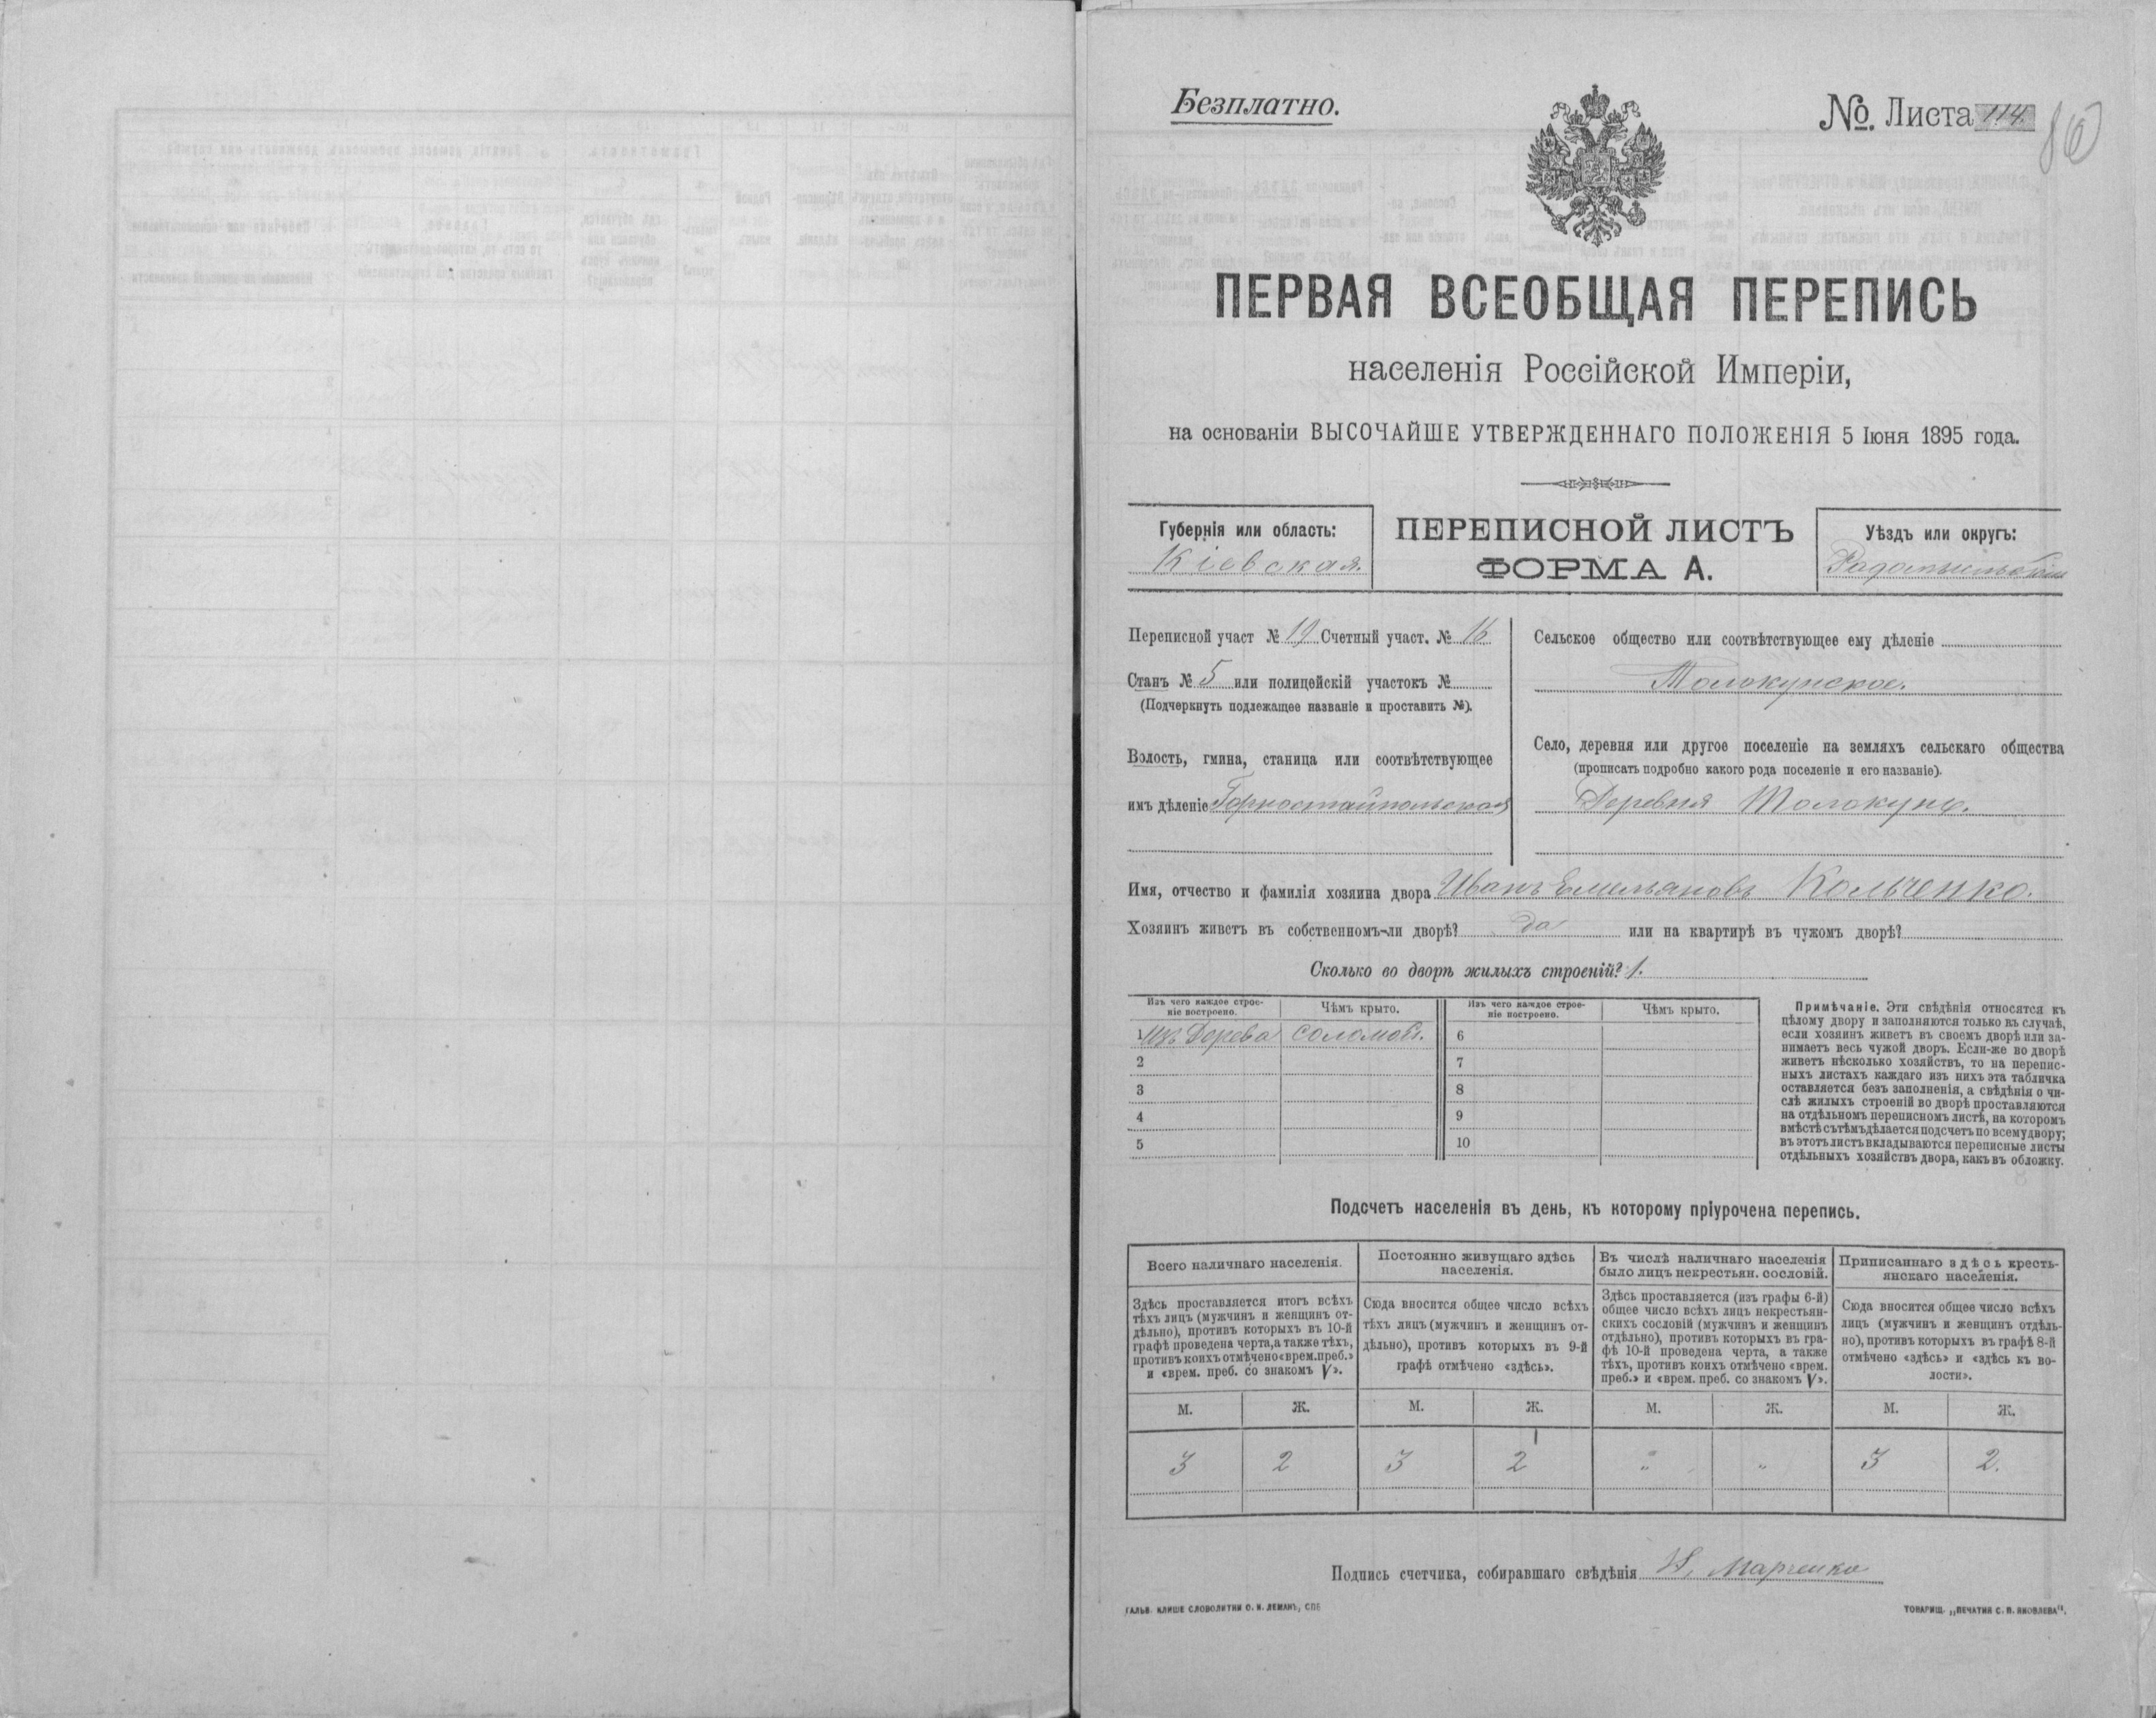 Безплатно.
№ Листа 114.
80
ПЕРВАЯ ВСЕОБЩАЯ ПЕРЕПИСЬ
населенія Россійской Имперіи,
на основаніи ВЫСОЧАЙШЕ УТВЕРЖДЕННАГО ПОЛОЖЕНІЯ 5 Іюня 1895 года.
Губернія или область:
Кіевская.
ПЕРЕПИСНОЙ ЛИСТЪ
ФОРМА А.
Уѣздъ или округъ:
Радомысльскій
Переписной участ № 19 Счетный участ. № 16
Станъ № 5 или полицейскій участокъ №
(Подчеркнуть подлежащее названіе и проставить №).
Волость, гмина, станица или соотвѣтствующее
имъ дѣленіе Горностайпольская
Сельское общество или соотвѣтствующее ему дѣленіе
Толокунское.
Село, деревня или другое поселеніе на земляхъ сельскаго общества
(прописать подробно какого рода поселеніе и его названіе).
Деревня Толокунь.
Имя, отчество и фамилія хозяина двора Иванъ Емельяновъ Кольченко.
Хозяинъ живетъ въ собственномъ-ли дворѣ? да или на квартирѣ въ чужомъ дворѣ?
Сколько во дворѣ жилыхъ строеній? 1.
Изъ чего каждое строе-
ніе построено.
Чѣмъ крыто.
Изъ чего каждое строе-
ніе построено.
Чѣмъ крыто.
1 Изъ Дерева соломой. 6
2 7
3 8
4 9
5 10
Примѣчаніе. Эти свѣдѣнія относятся къ
цѣлому двору и заполняются только въ случаѣ,
если хозяинъ живетъ въ своемъ дворѣ или за-
нимаетъ весь чужой дворъ. Если-же во дворѣ
живетъ нѣсколько хозяйствъ, то на перепис-
ныхъ листахъ каждаго изъ нихъ эта табличка
оставляется безъ заполненія, а свѣдѣнія о чи-
слѣ жилыхъ строеній во дворѣ проставляются
на отдѣльномъ переписномъ листѣ, на которомъ
вмѣстѣ съ тѣмъ дѣлается подсчетъ по всему двору;
въ этотъ листъ вкладываются переписные листы
отдѣльныхъ хозяйствъ двора, какъ въ обложку.
Подсчетъ населенія въ день, къ которому пріурочена перепись.
Всего наличнаго населенія.
Здѣсь проставляется итогъ всѣхъ
тѣхъ лицъ (мужчинъ и женщинъ от-
дѣльно), противъ которыхъ въ 10-й
графѣ проведена черта, а также тѣхъ,
противъ коихъ отмѣчено «врем. преб.»
и «врем. преб. со знакомъ V».
Постоянно живущаго здѣсь
населенія.
Сюда вносится общее число всѣхъ
тѣхъ лицъ (мужчинъ и женщинъ от-
дѣльно), противъ которыхъ въ 9-й
графѣ отмѣчено «здѣсь».
Въ числѣ наличнаго населенія
было лицъ некрестьян. сословій.
Здѣсь проставляется (изъ графы 6-й)
общее число всѣхъ лицъ некрестьян-
скихъ сословій (мужчинъ и женщинъ
отдѣльно), противъ которыхъ въ гра-
фѣ 10-й проведена черта, а также
тѣхъ, противъ коихъ отмѣчено «врем.
преб.» и «врем. преб. со знакомъ V».
Приписаннаго здѣсь кресть-
янскаго населенія.
Сюда вносится общее число всѣхъ
лицъ (мужчинъ и женщинъ отдѣль-
но), противъ которыхъ въ графѣ 8-й
отмѣчено «здѣсь» и «здѣсь къ во-
лости».
М. Ж. М. Ж. М. Ж. М. Ж.
3 2 3 2 " " 3 2.
Подпись счетчика, собиравшаго свѣдѣнія Н. Марченко
ГАЛЬВ. КЛИШЕ СЛОВОЛИТНИ О. И. ЛЕМАНЪ, СПБ
ТОВАРИЩ. „ПЕЧАТНЯ С. П. ЯКОВЛЕВА".